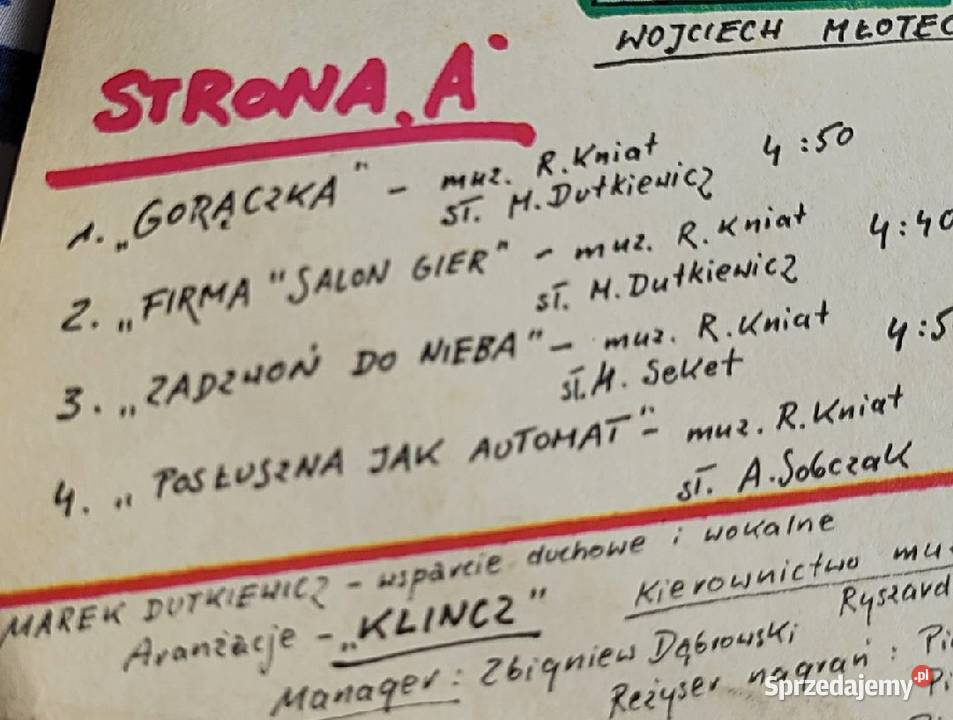 WOJCIECH MŁOTEC
STRONA "A"
1. „GORĄCZKA" - muz. R. Kniat 4:50
sł. M. Dutkiewicz
2. „FIRMA "SALON GIER" - muz. R. Kniat 4:40
sł. M. Dutkiewicz
3. „ZADZWOŃ DO NIEBA" - muz. R. Kniat 4:5
sł. M. Seket
4. „POSŁUSZNA JAK AUTOMAT" - muz. R. Kniat
sł. A. Sobczak
MAREK DUTKIEWICZ - wsparcie duchowe i wokalne
Aranżacje - „KLINCZ" Kierownictwo mu
Ryszard
Manager: Zbigniew Dąbrowski
Reżyser nagrań: Pi
Pi
Sprzedajemy.pl